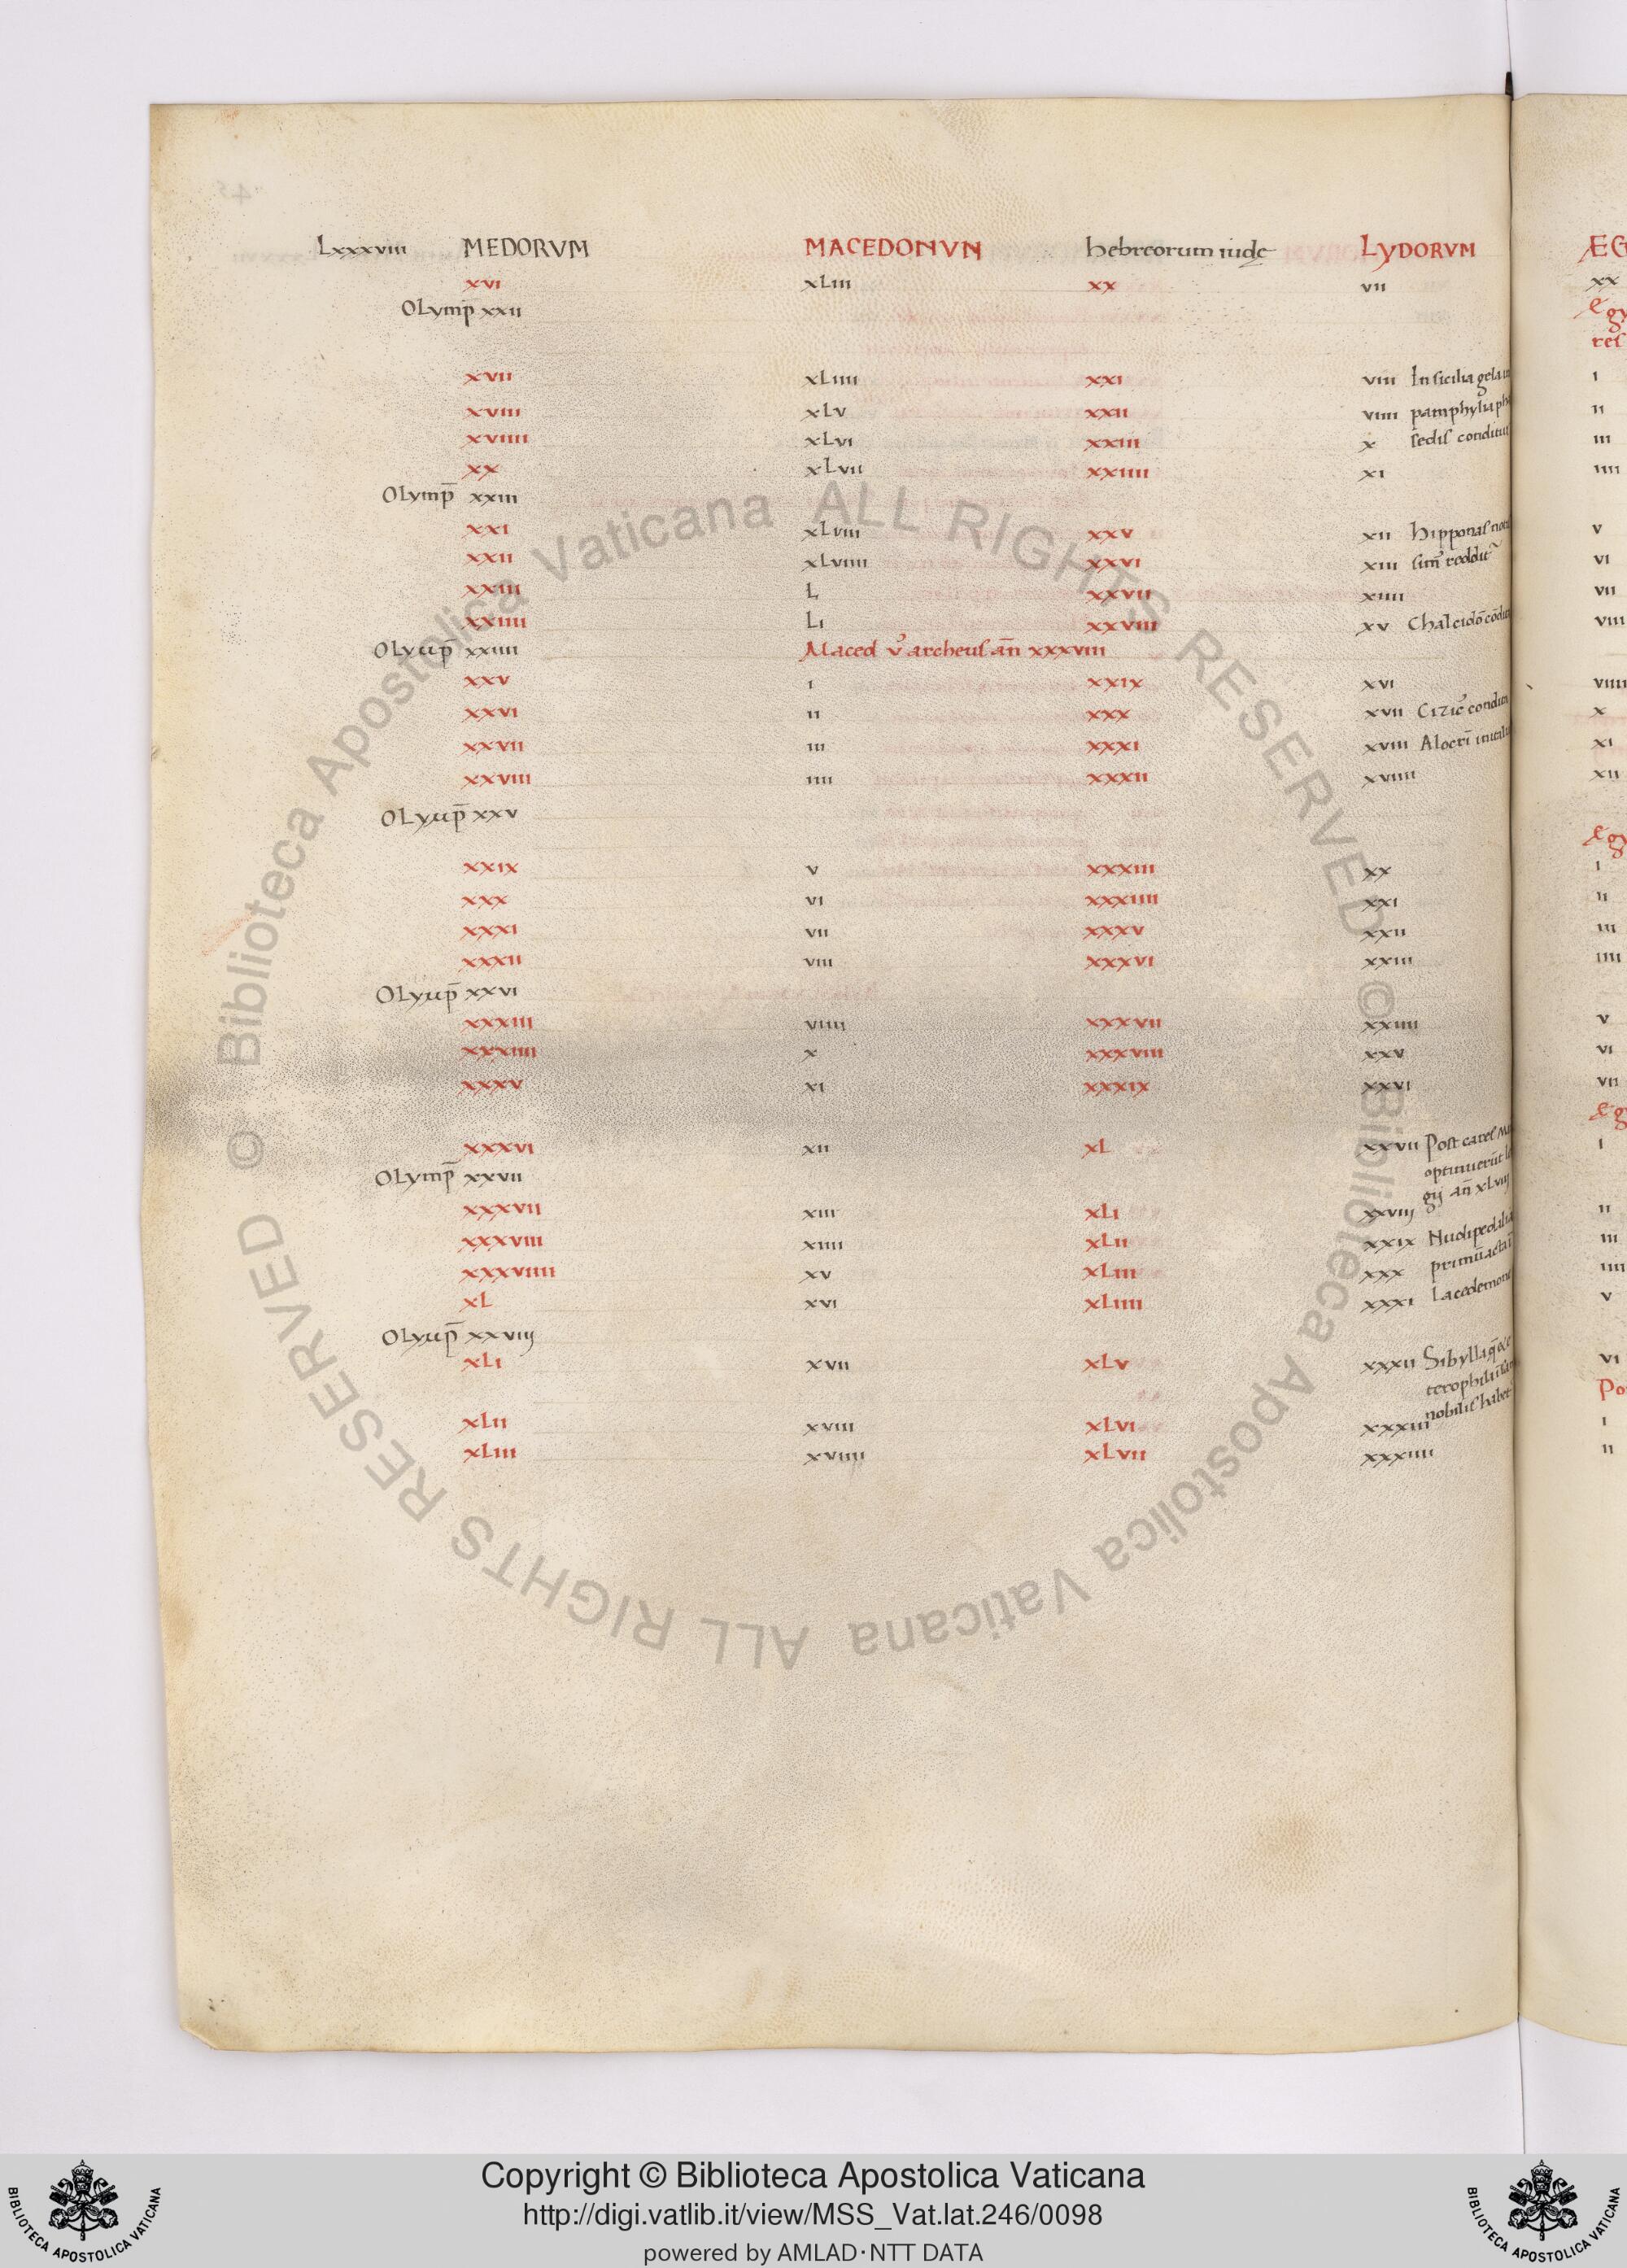 Lxxxviii MEDORVM MACEDONVN hebreorum iudę LYDORVM ÆG
xvi xLiii xx vii xx
OLymp̄ xxii
xvii xLiiii xxi viii In sicilia gela i
xviii xLv xxii viiii pamphylia ph ii
xviiii xLvi xxiii x sedis conditur iii
xx xLvii xxiiii xi iiii
OLymp̄ xxiii
xxi xLviii xxv xii hipponas v
xxii xLviiii xxvi xiii reddit vi
xxiii L xxvii xiiii vii
xxiiii Li xxviii xv Chalcidō viii
OLymp̄ xxiiii Maced v̓ archeus an̄ xxxviii
xxv i xxix xvi viiii
xxvi ii xxx xvii x
xxvii iii xxxi xviii xi
xxviii iiii xxxii xviiii xii
OLymp̄ xxv
xxix v xxxiii xx i
xxx vi xxxiiii xxi ii
xxxi vii xxxv xxii iii
xxxii viii xxxvi xxiii iiii
OLymp̄ xxvi
xxxiii viiii xxxvii xxiiii v
xxxiiii x xxxviii xxv vi
xxxv xi xxxix xxvi vii
xxxvi xii xL xxvii Post cares i
optinuerūt
OLymp̄ xxvii gij an̄ xLviij
xxxvii xiii xLi xxviij ii
xxxviii xiiii xLii xxix Nudipedalia iii
xxxviiii xv xLiii xxx iiii
xL xvi xLiiii xxxi Lacedemone v
OLymp̄ xxviij
xLi xvii xLv xxxii Sibylla vi
nobilis habet
xLii xviii xLvi xxxiii i
xLiii xviiii xLvii xxxiiii ii
© Biblioteca Apostolica Vaticana ALL RIGHTS RESERVED © Biblioteca Apostolica Vaticana ALL RIGHTS RESERVED
Copyright © Biblioteca Apostolica Vaticana
http://digi.vatlib.it/view/MSS_Vat.lat.246/0098
powered by AMLAD·NTT DATA
BIBLIOTECA APOSTOLICA VATICANA
BIBLIOTECA APOSTOLICA VATICANA